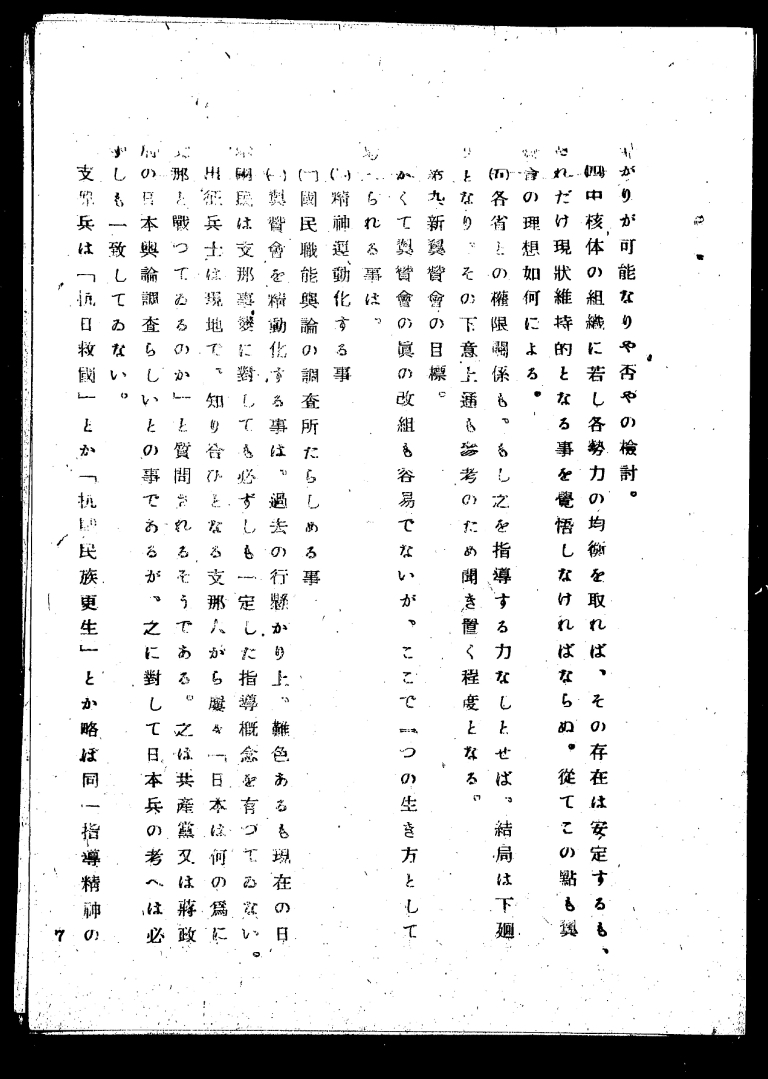 がりが可能なりや否やの檢討。
㈣中核体の組織に若し各勢力の均衡を取れば、その存在は安定するも、
されだけ現狀維持的となる事を覺悟しなければならぬ。從てこの點も翼
會の理想如何による。
㈤各省との權限關係も、もし之を指導する力なしとせば。結局は下廻
りとなり、その下意上通も參考のため聞き置く程度となる。
第九新翼贊會の目標。
かくて翼贊會の眞の改組も容易でないが、ここで二つの生き方として
られる事は。
㈠精神運動化する事
㈡國民職能輿論の調査所たらしめる事
㈠翼贊會を精動化する事は。過去の行懸かり上、難色あるも現在の日
國民は支那事變に對しても必ずしも一定した指導概念を有つてゐない。
出征兵士は現地で、知り合ひとなる支那人から屢々「日本は何の爲に
那と戰つてゐるのか」と質問されるそうである。之は共產黨又は蔣政
の日本輿論調査らしいとの事であるが、之に對して日本兵の考へは必
ずしも一致してゐない。
支那兵は「抗日救國」とか「抗日民族更生」とか略ぼ同一指導精神の
7